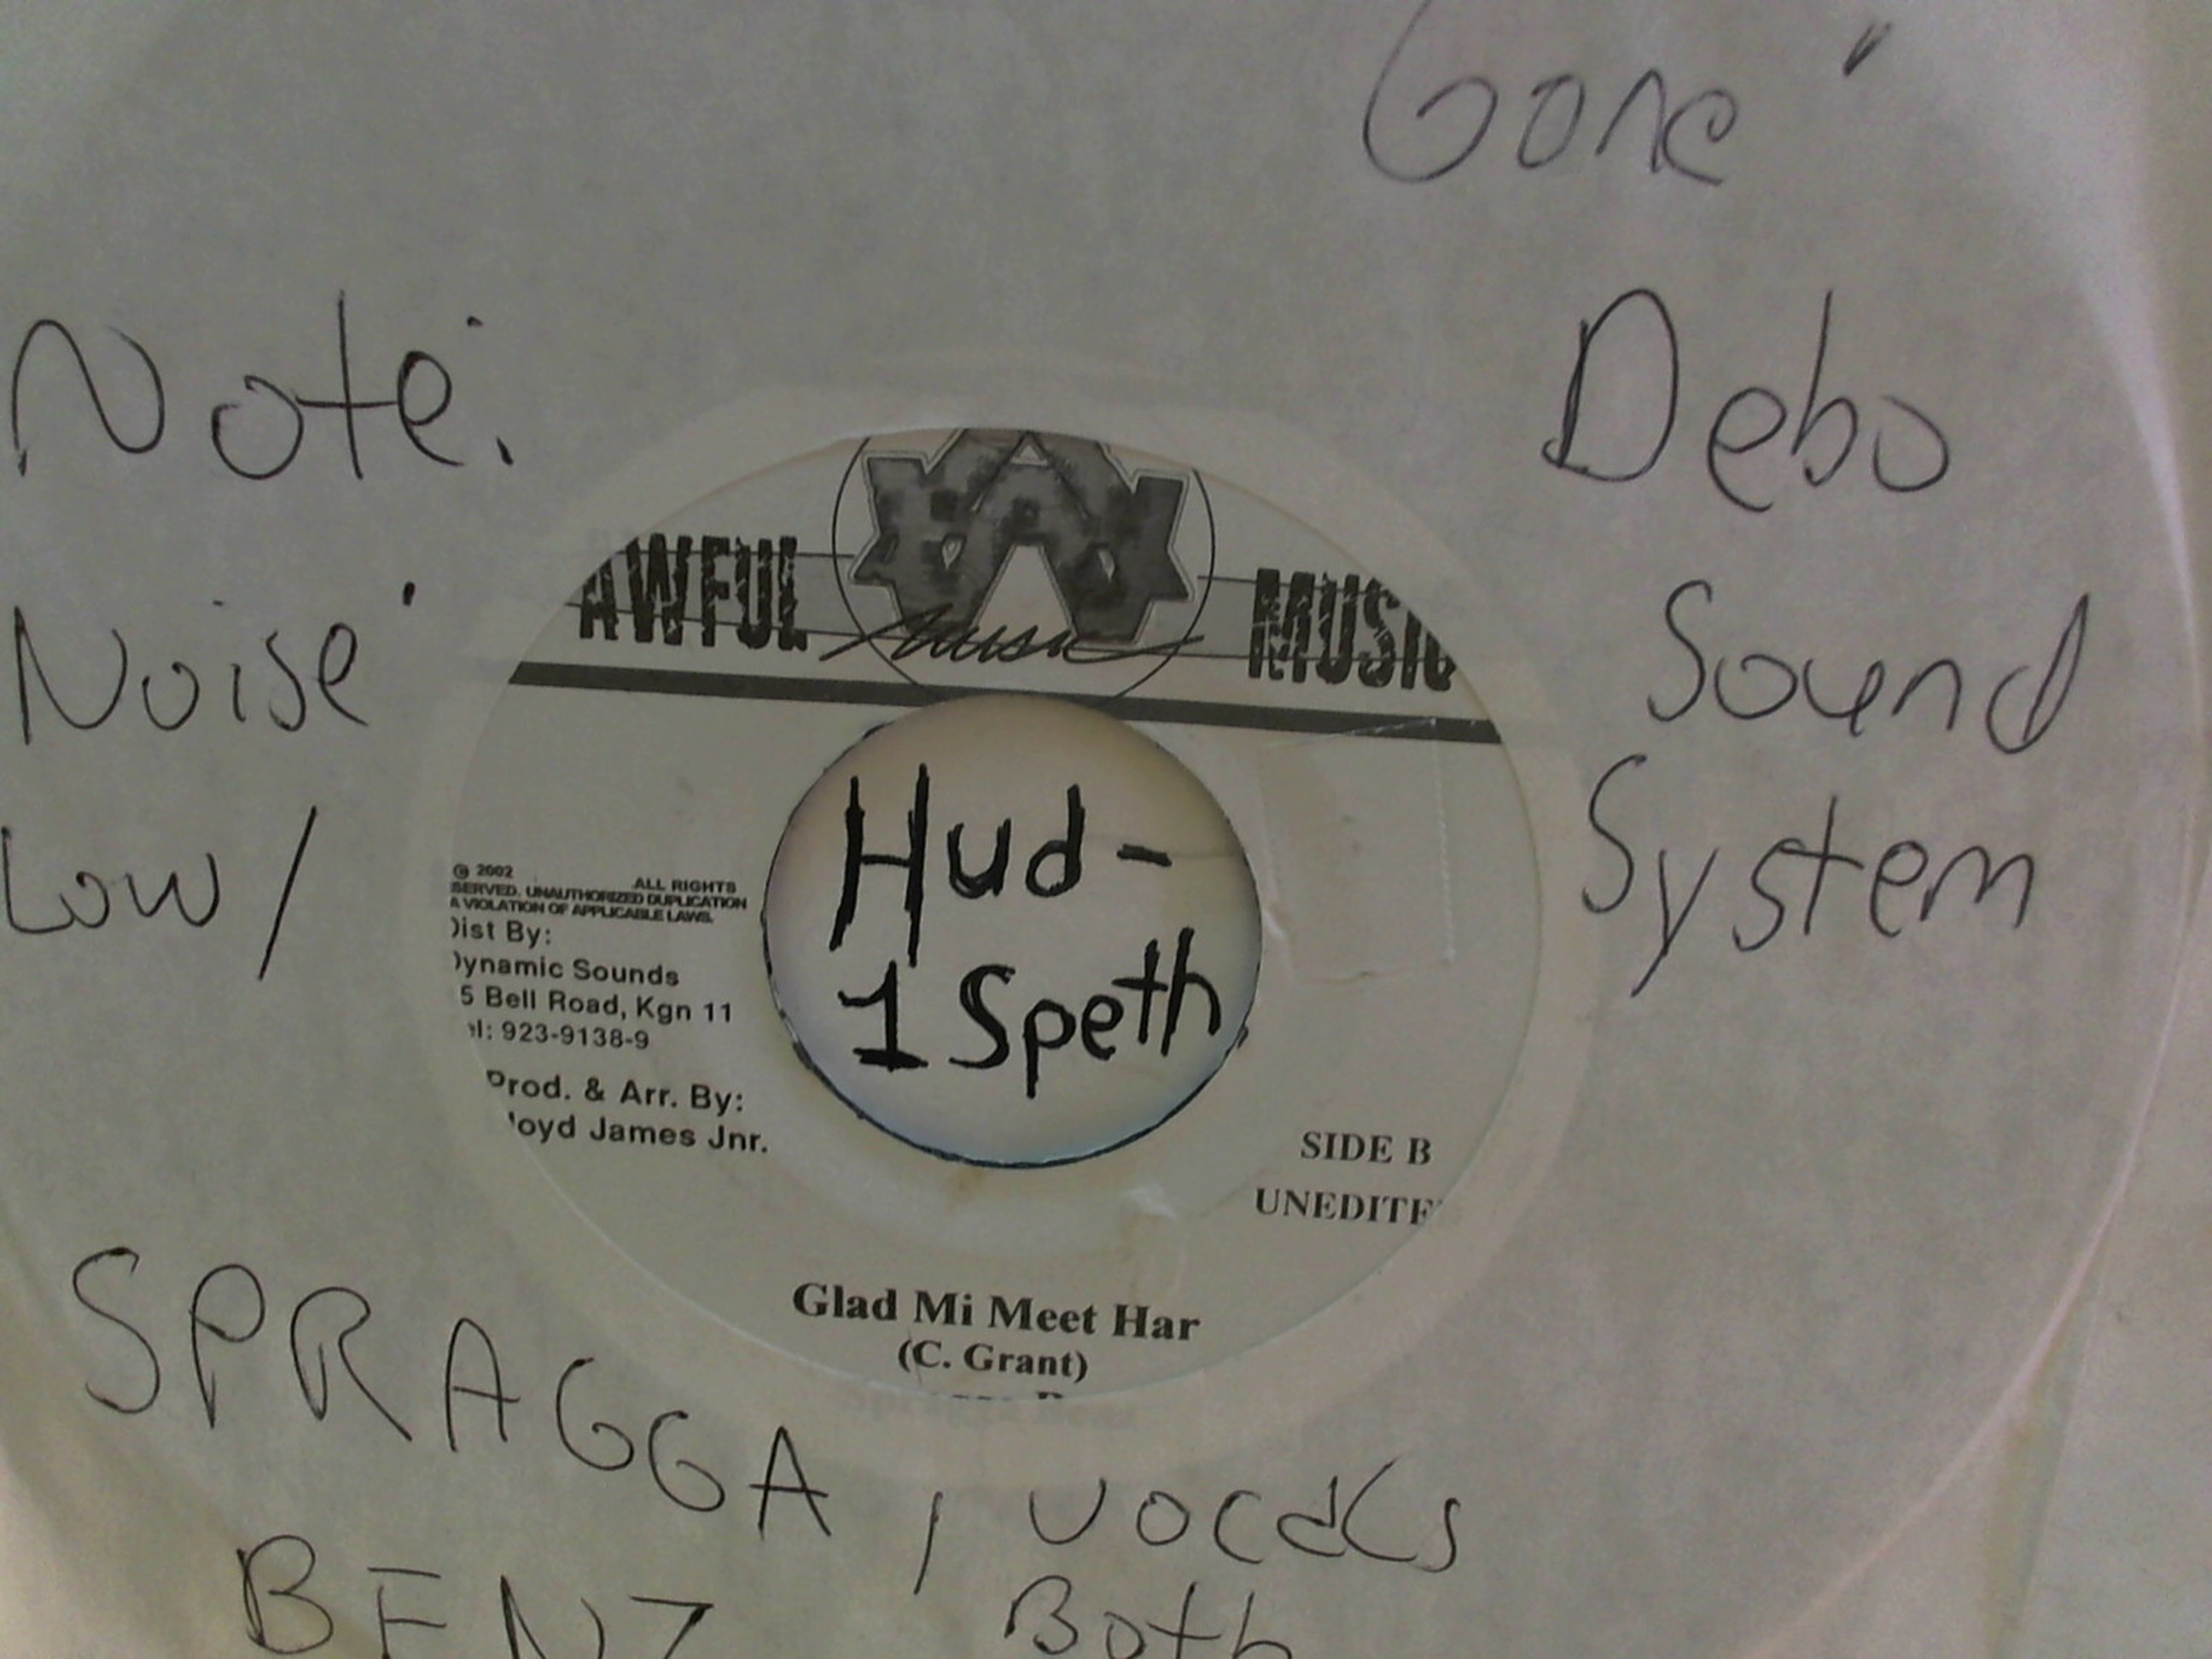 Gone"
Note:
Debo
Noise
Sound
Low/
System
AWFUL
Music
MUSIC
Hud-
1 Speth
© 2002 ALL RIGHTS
SERVED. UNAUTHORIZED DUPLICATION
A VIOLATION OF APPLICABLE LAWS.
Dist By:
Dynamic Sounds
5 Bell Road, Kgn 11
el: 923-9138-9
Prod. & Arr. By:
loyd James Jnr.
SIDE B
UNEDITE
Glad Mi Meet Har
(C. Grant)
Spragga Benz
SPRAGGA, vocals
BENZ Both